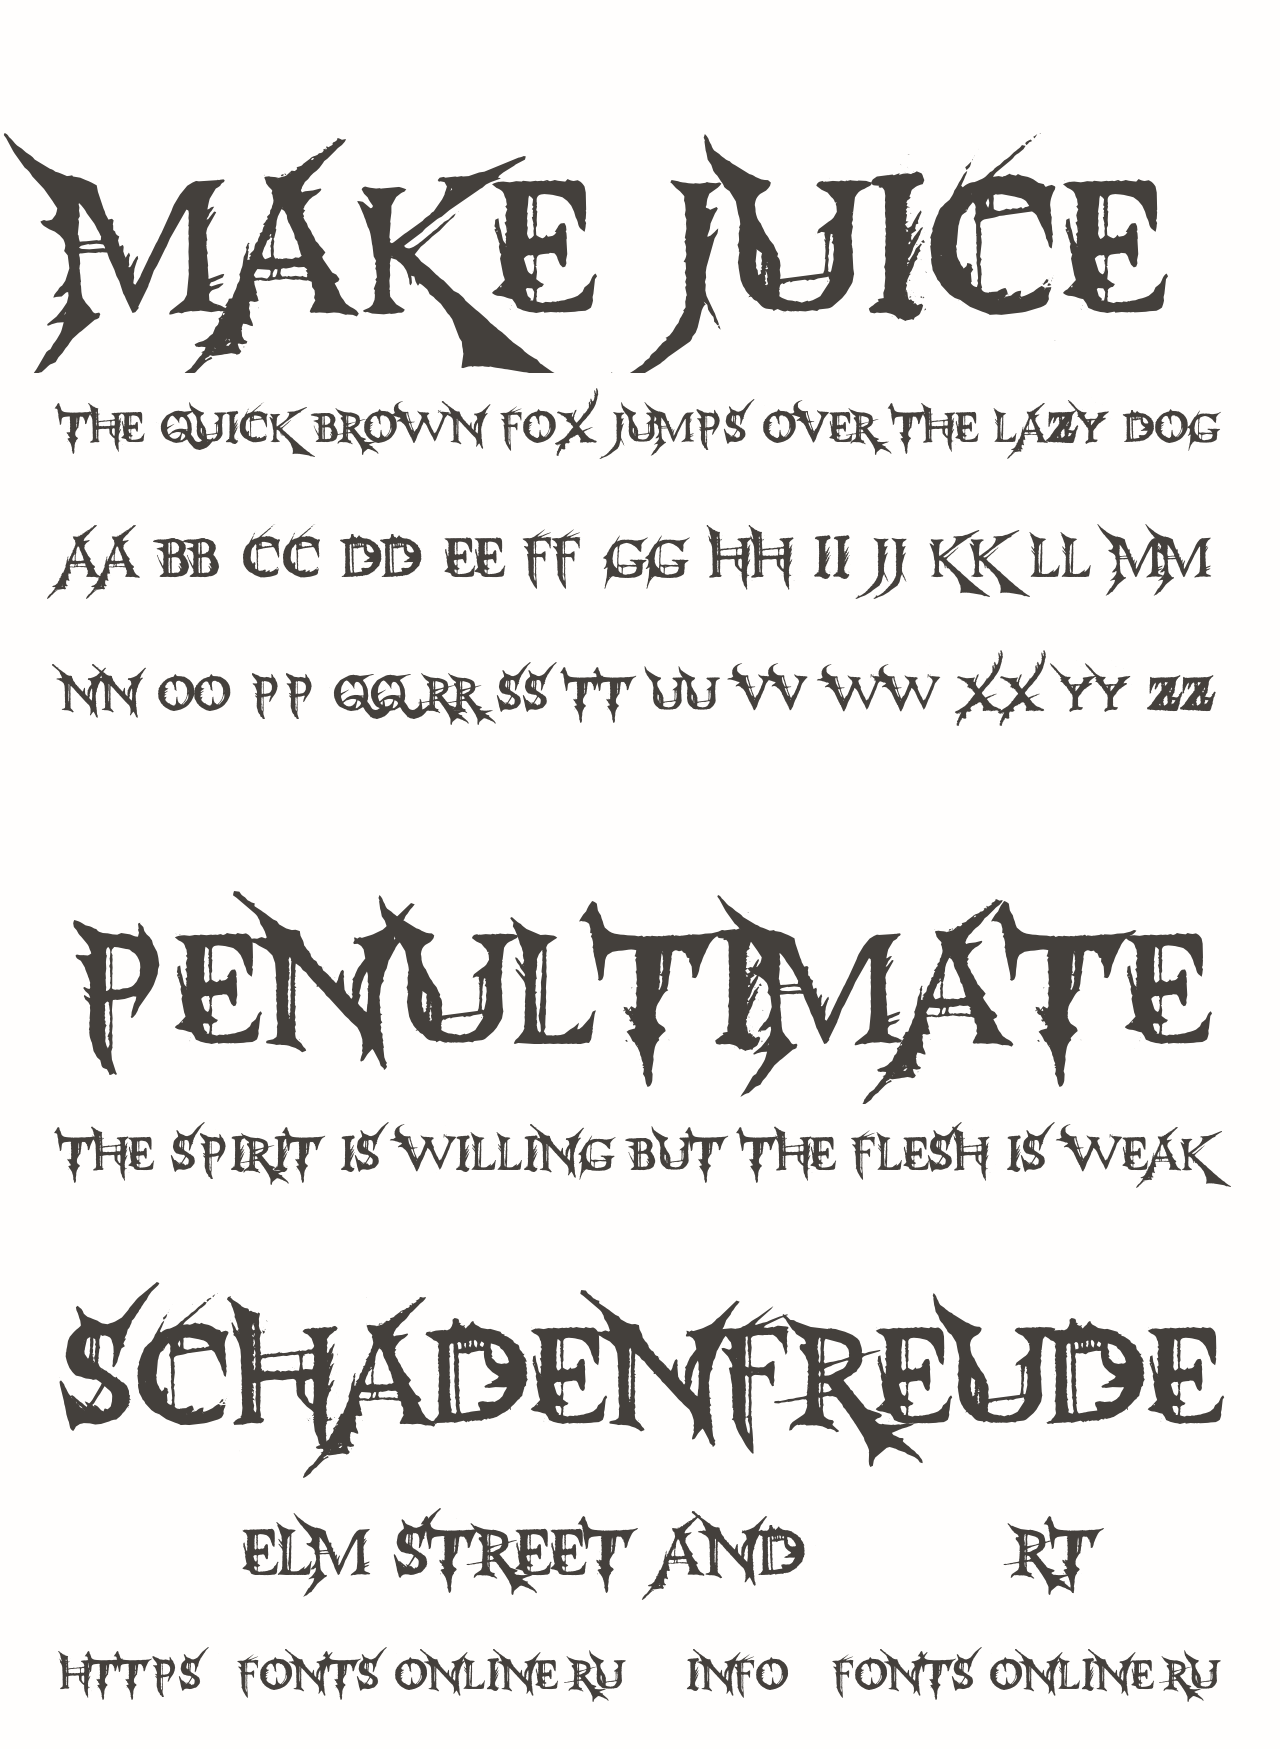 MAKE JUICE
THE QUICK BROWN FOX JUMPS OVER THE LAZY DOG
AA BB CC DD EE FF GG HH II JJ KK LL MM
NN OO PP QQ RR SS TT UU VV WW XX YY ZZ
PENULTIMATE
THE SPIRIT IS WILLING BUT THE FLESH IS WEAK
SCHADENFREUDE
ELM STREET AND RT
HTTPS FONTS ONLINE RU INFO FONTS ONLINE RU